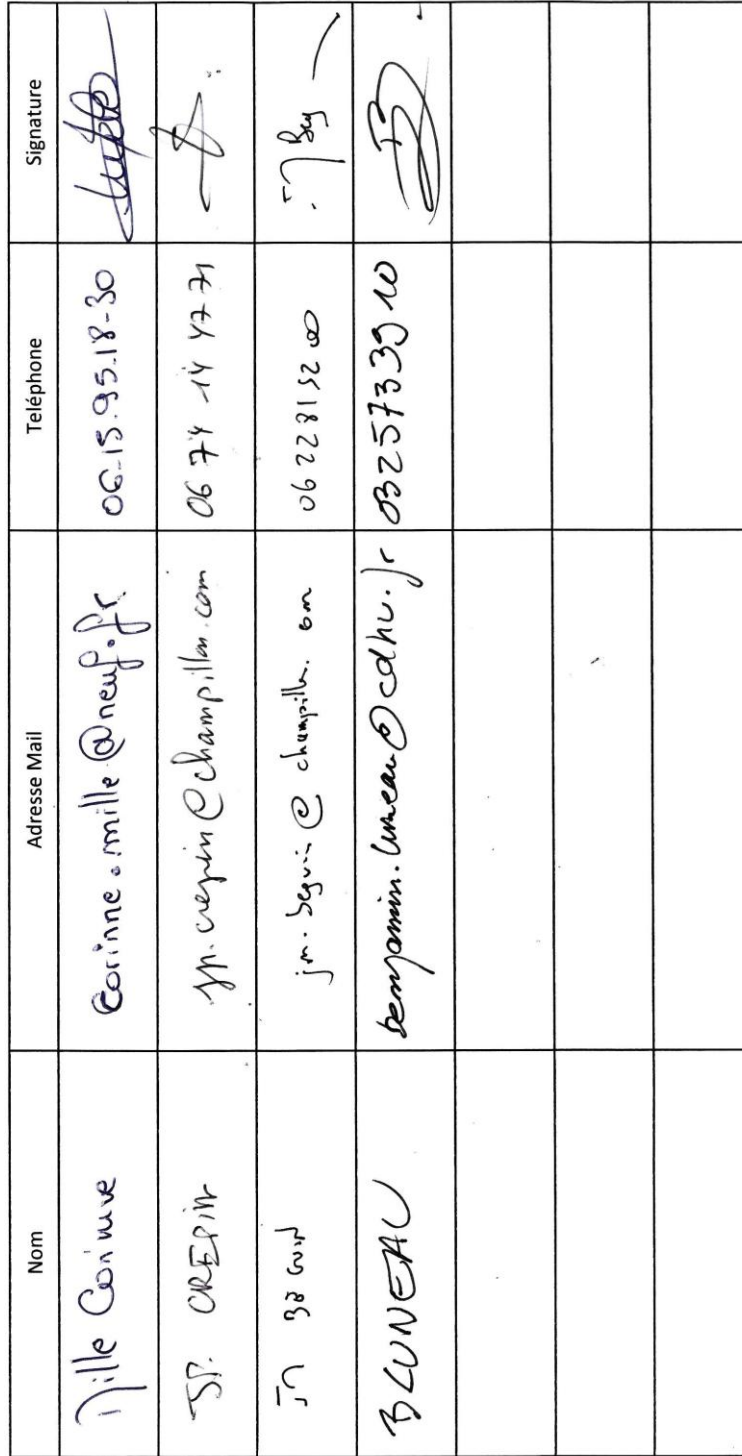 Nom Adresse Mail Teléphone Signature
Mille Corinne corinne.mille@neuf.fr 06.15.95.18-30
JP. CREPIN jp.crepin@champillon.com 06 74 14 47 71
JM jm.seguin@champillon.com 06 22 81 52 00
B LUNEAU benjamin.luneau@cdhu.fr 0325733910